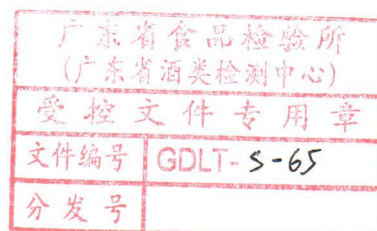 广东省食品检验所
(广东省酒类检测中心)
受控文件专用章
文件编号 GDLT-S-65
分发号